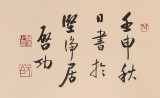 壬申秋
日書於
堅淨居
啓功